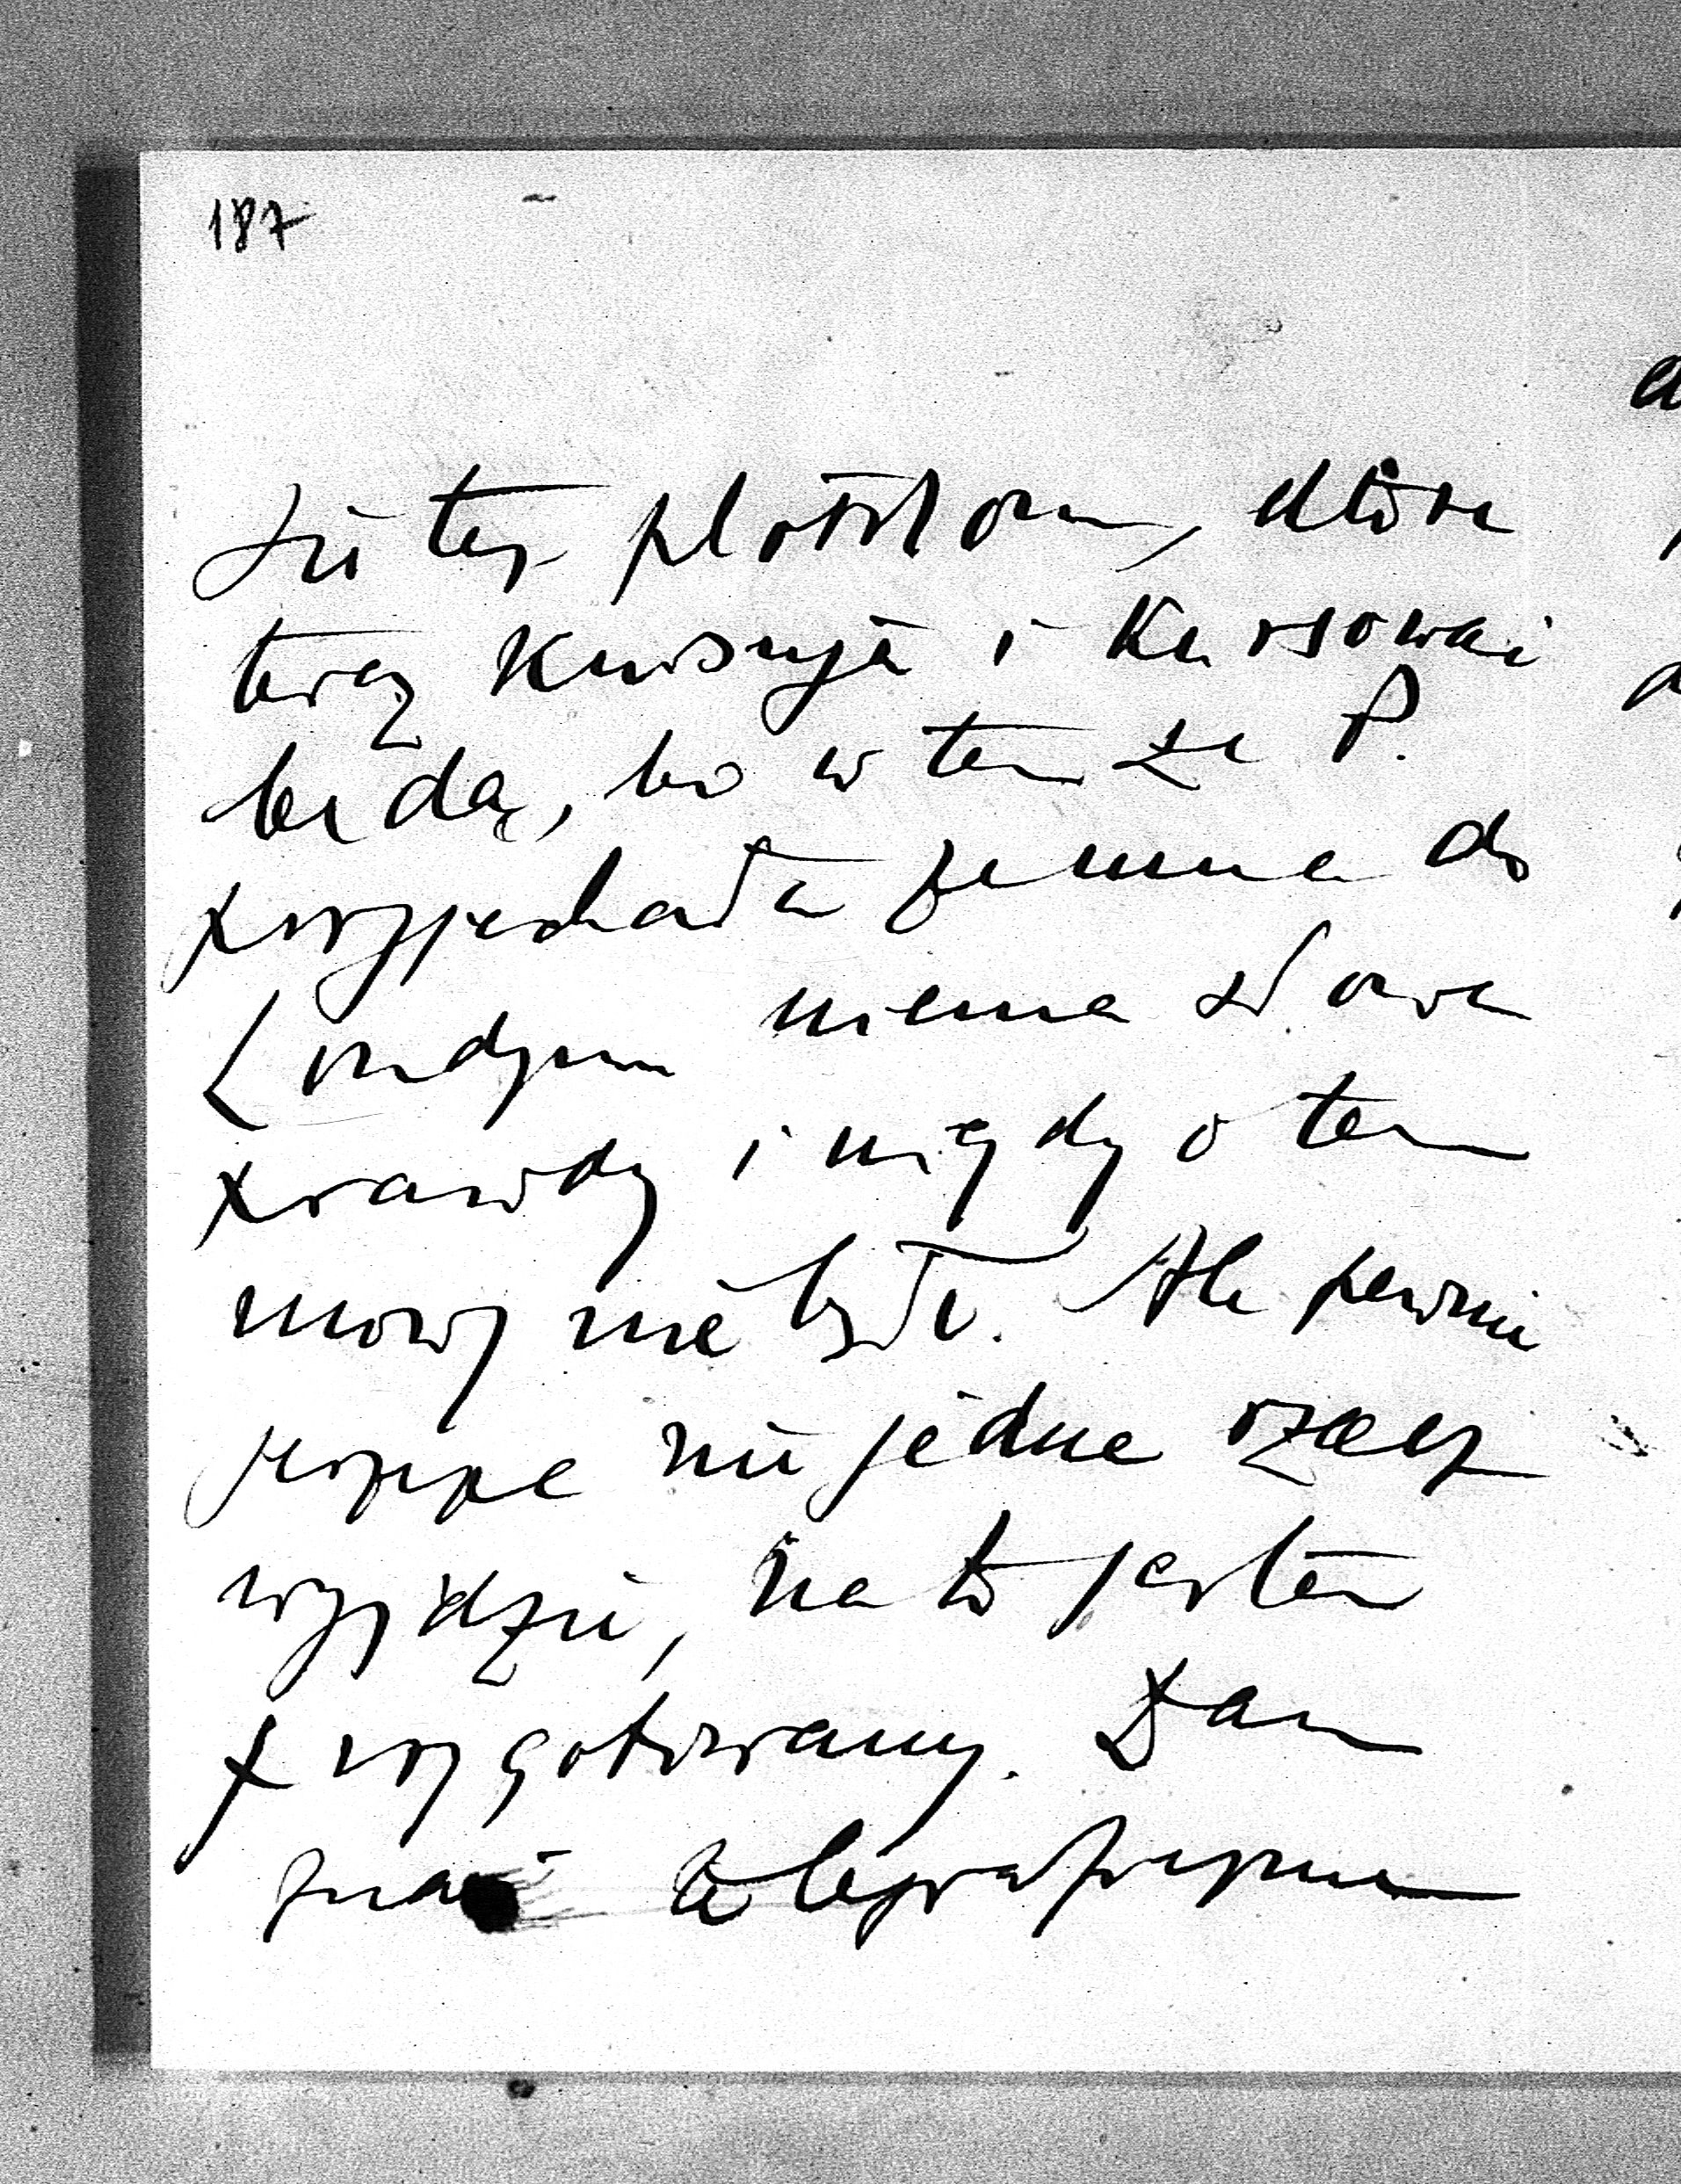 187
się tez plotkom, które
teraz kursują i kursować
będą, bo w tem że P.
przyjechała zemna do
Londynu niema słowa
prawdy i nigdy o tem
mowy nie było. Ale pewnie
jeszcze nie jedna rzecz
wyjdzie, na to jestem
przygotowany. Dam
znać telegraficznie